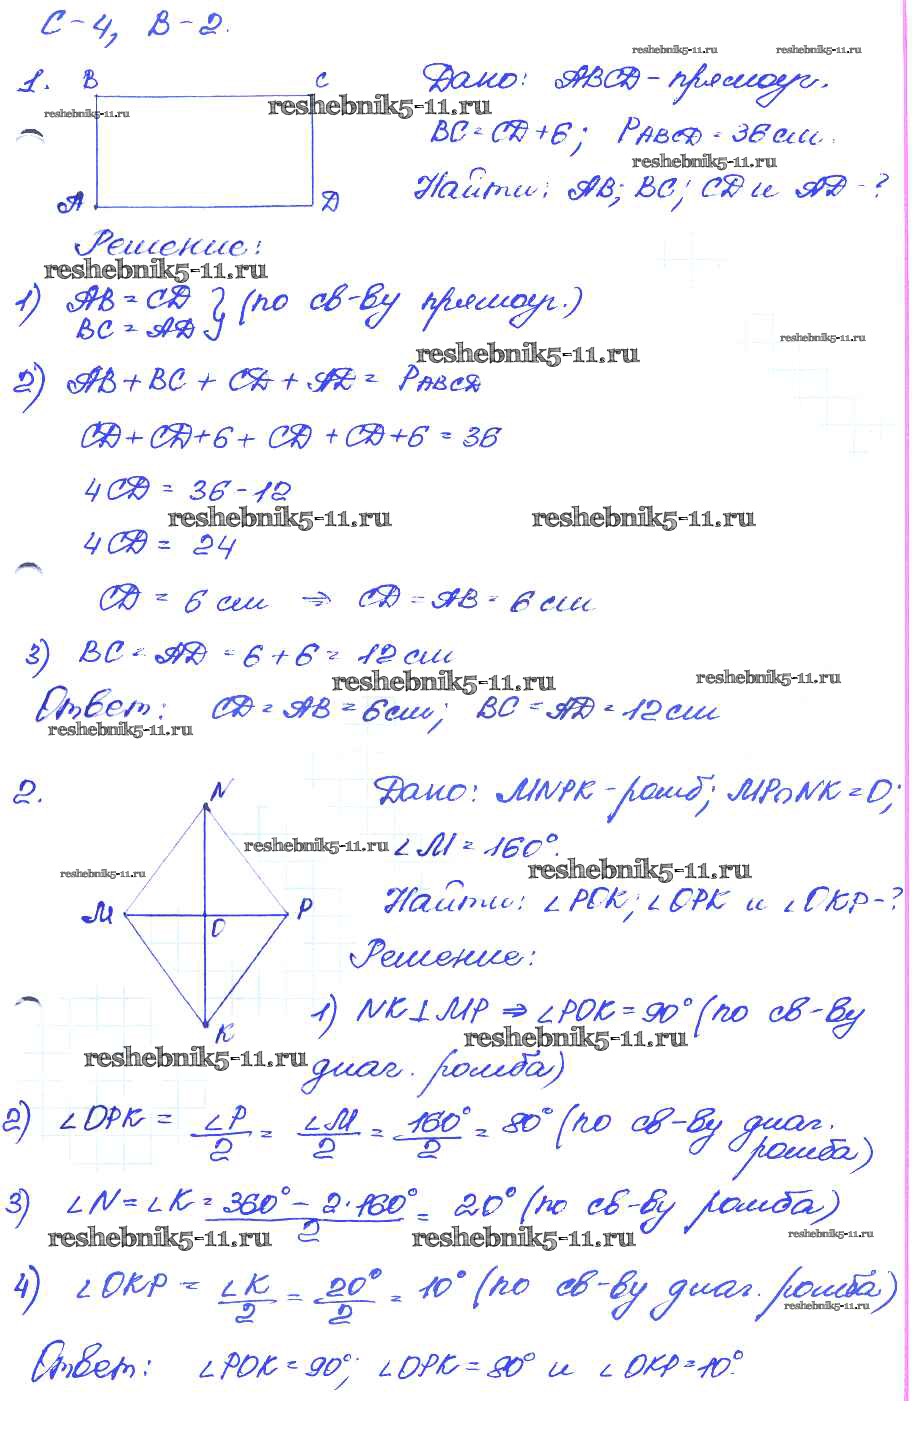 С-4, В-2.
reshebnik5-11.ru reshebnik5-11.ru
1. B C Дано: ABCD - прямоуг.
reshebnik5-11.ru reshebnik5-11.ru
BC = CD + 6; PABCD = 36 см.
reshebnik5-11.ru
A D Найти: AB; BC; CD и AD - ?
Решение:
reshebnik5-11.ru
1) AB = CD } (по св-ву прямоуг.)
BC = AD
reshebnik5-11.ru
reshebnik5-11.ru
2) AB + BC + CD + AD = PABCD
CD + CD + 6 + CD + CD + 6 = 36
4CD = 36 - 12
reshebnik5-11.ru reshebnik5-11.ru
4CD = 24
CD = 6 см ⇒ CD = AB = 6 см
3) BC = AD = 6 + 6 = 12 см
reshebnik5-11.ru reshebnik5-11.ru
Ответ: CD = AB = 6 см; BC = AD = 12 см
reshebnik5-11.ru
2. N Дано: MNPK - ромб; MP∩NK = O;
reshebnik5-11.ru ∠M = 160°.
reshebnik5-11.ru reshebnik5-11.ru
M O P Найти: ∠POK; ∠OPK и ∠OKP - ?
Решение:
K 1) NK ⊥ MP ⇒ ∠POK = 90° (по св-ву
reshebnik5-11.ru
reshebnik5-11.ru
диаг. ромба)
2) ∠OPK = ∠P/2 = ∠M/2 = 160°/2 = 80° (по св-ву диаг.
ромба)
3) ∠N = ∠K = 360° - 2·160°/2 = 20° (по св-ву ромба)
reshebnik5-11.ru reshebnik5-11.ru reshebnik5-11.ru
4) ∠OKP = ∠K/2 = 20°/2 = 10° (по св-ву диаг. ромба)
reshebnik5-11.ru
Ответ: ∠POK = 90°; ∠OPK = 80° и ∠OKP = 10°.